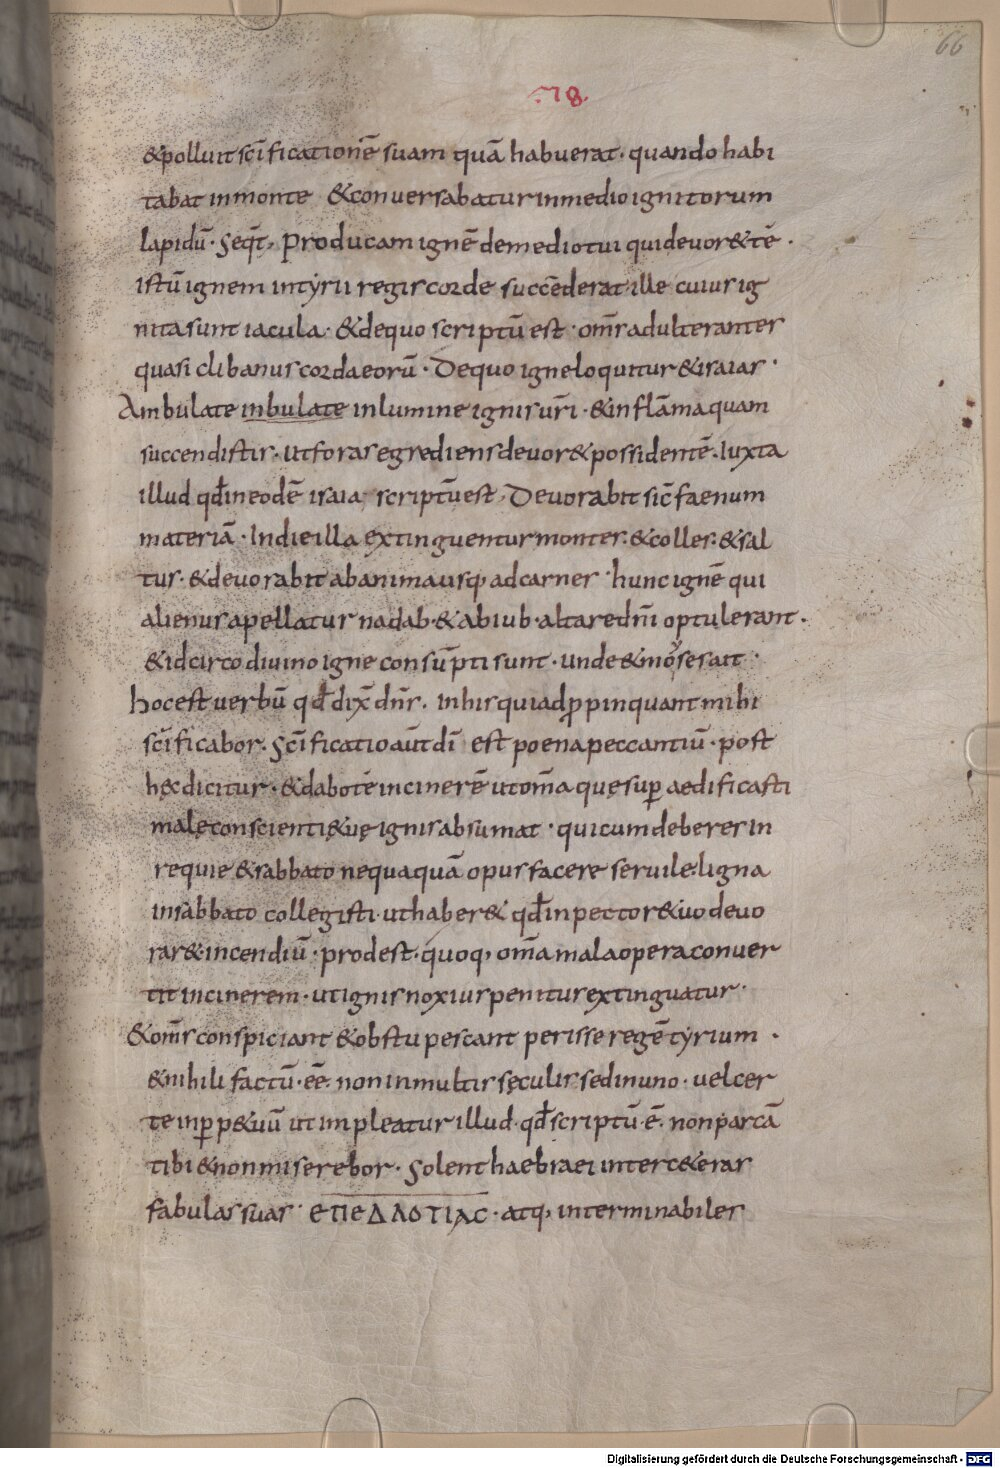 66
·78·
&polluit sc̄ificationē suam quā habuerat· quando habi
tabat in monte &conversabatur in medio ignitorum
lapidū· Seqt̄, Producam ignē de medio tui qui devor& tē·
istū ignem in tyrii regis corde succēderat ille cuius ig
nita sunt iacula· &de quo scriptū est· om̄s adulterantes
quasi clibanus corda eorū· De quo igne loquitur &isaias·
Ambulate inbulate in lumine ignis ur̄i· &in flāma quam
succendistis· ut foras egrediens devor& possidentē· Iuxta
illud qd̄ in eodē isaia scriptū est, Devorabit sic̄ faenum
materiā· In die illa extinguentur montes· &colles· &sal
tus· &devorabit ab anima usq, ad carnes· hunc ignē qui
alienus apellatur nadab·&abiub· altare dn̄i optulerant·
&idcirco divino igne consūpti sunt· unde &moyses ait·
hoc est verbū qd̄ dix̄ dn̄s· in his qui adpropinquant mihi
sc̄ificabor· Sc̄ificatio aūt dī est poena peccantiū· post
hęc dicitur· &dabo tē in cinerē ut om̄a quę sup aedificasti
male conscienti&uę ignis absumat· qui cum deberes in
requie &sabbato nequaquā opus facere servile· ligna
in sabbato collegisti· ut haber& qd̄ in pector& uo devo
rar& incendiū· prodest· quoq, om̄a mala opera conver
tit in cinerem· ut ignis noxius penitus extinguatur·
&om̄s conspiciant &obstupescant perisse regē tyrium·
&nihili factū· eē· non in multis sęculis sed in uno· vel cer
te in perp&uū ut impleatur illud· qd̄ scriptū· ē· non parcā
tibi &non miserebor· Solent haebraei inter c&eras
fabulas suas· ΕΠΕΔΛΟΤΙΑC· atq, interminabiles
Digitalisierung gefördert durch die Deutsche Forschungsgemeinschaft - DFG